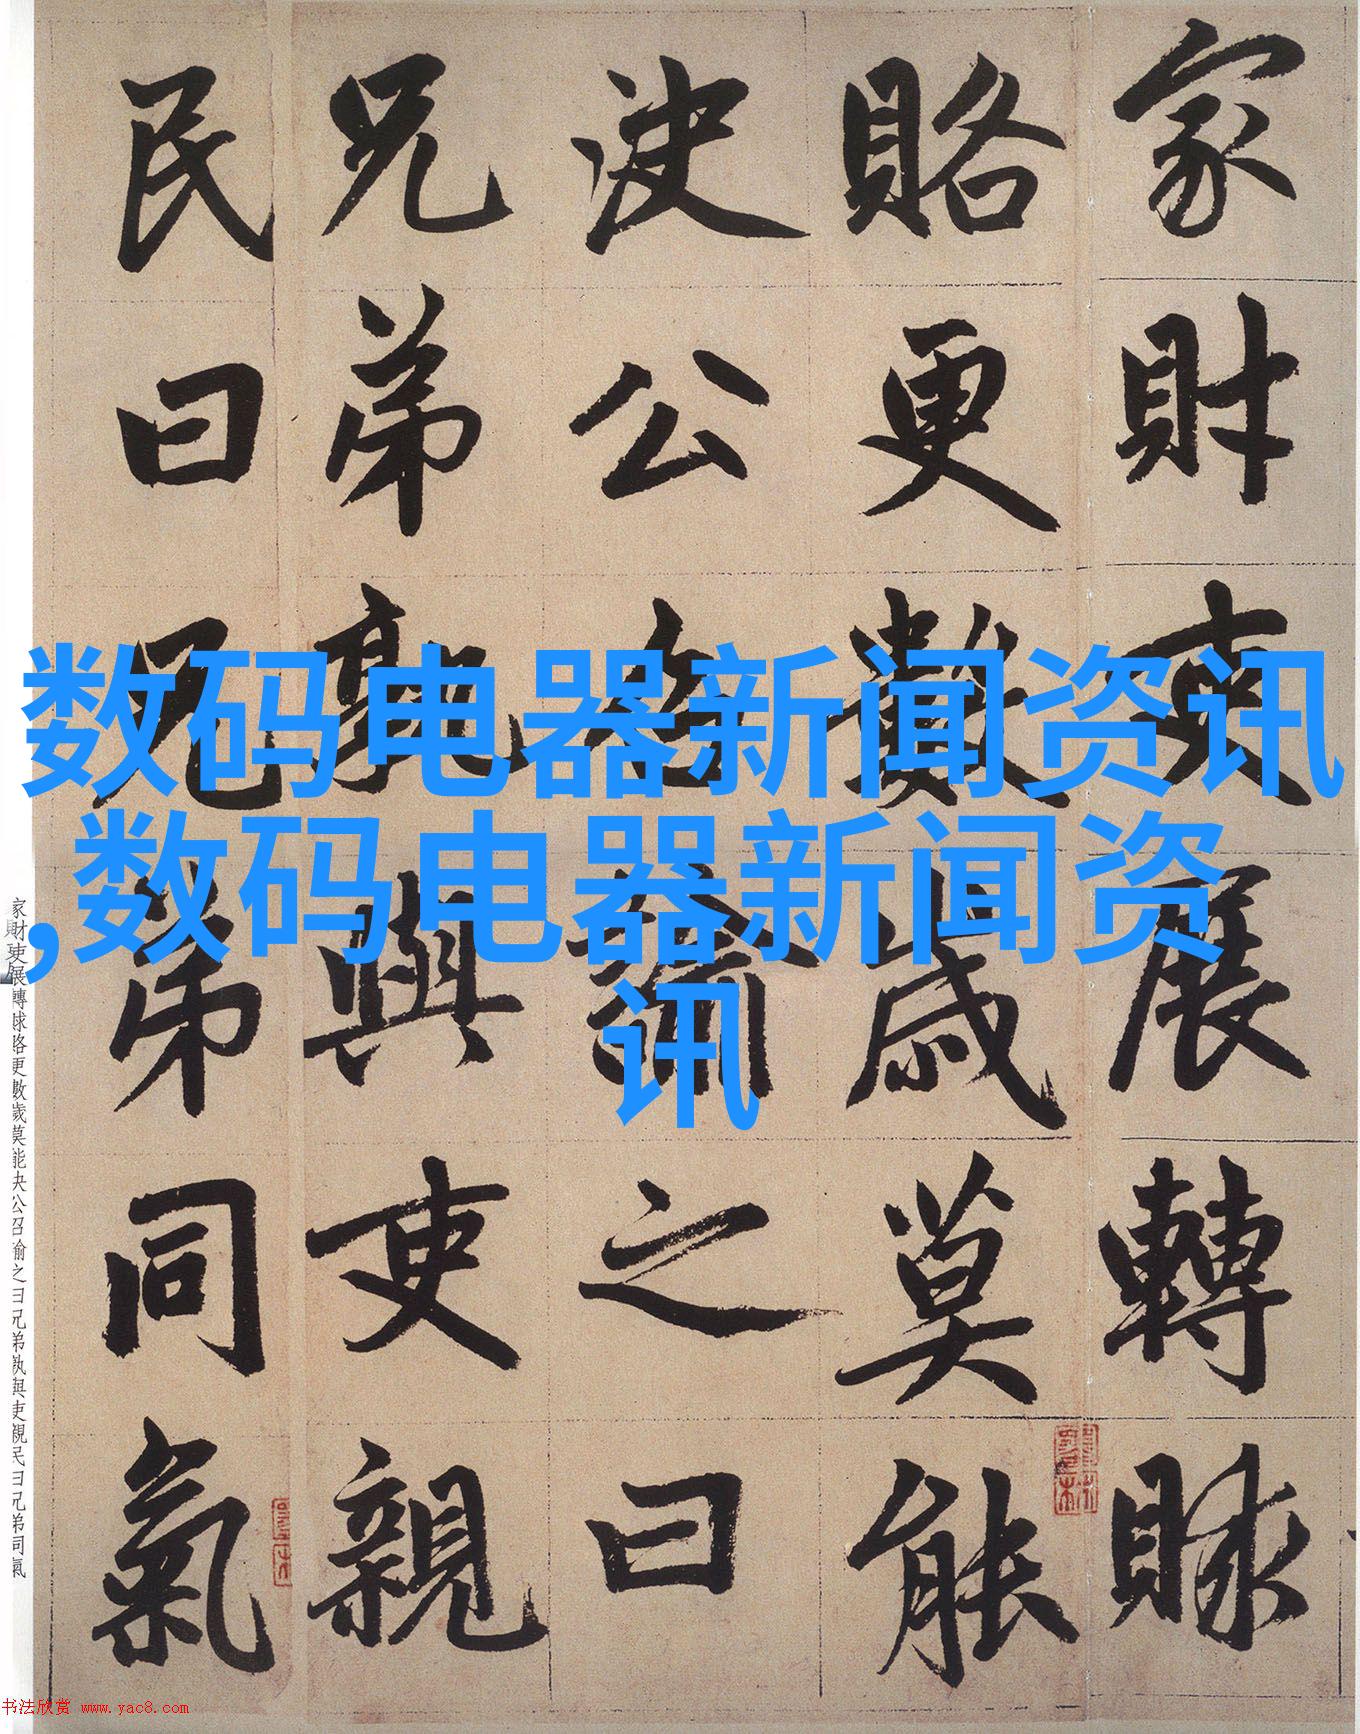 家財吏展轉賕
賂更數歲莫能
決公召諭之曰
兄弟孰與吏親
民曰兄弟同氣
数码电器新闻资讯
,数码电器新闻资
讯
家財吏展轉賕賂更數歲莫能決公召諭之曰兄弟孰與吏親民曰兄弟同氣
书法欣赏 www.yac8.com